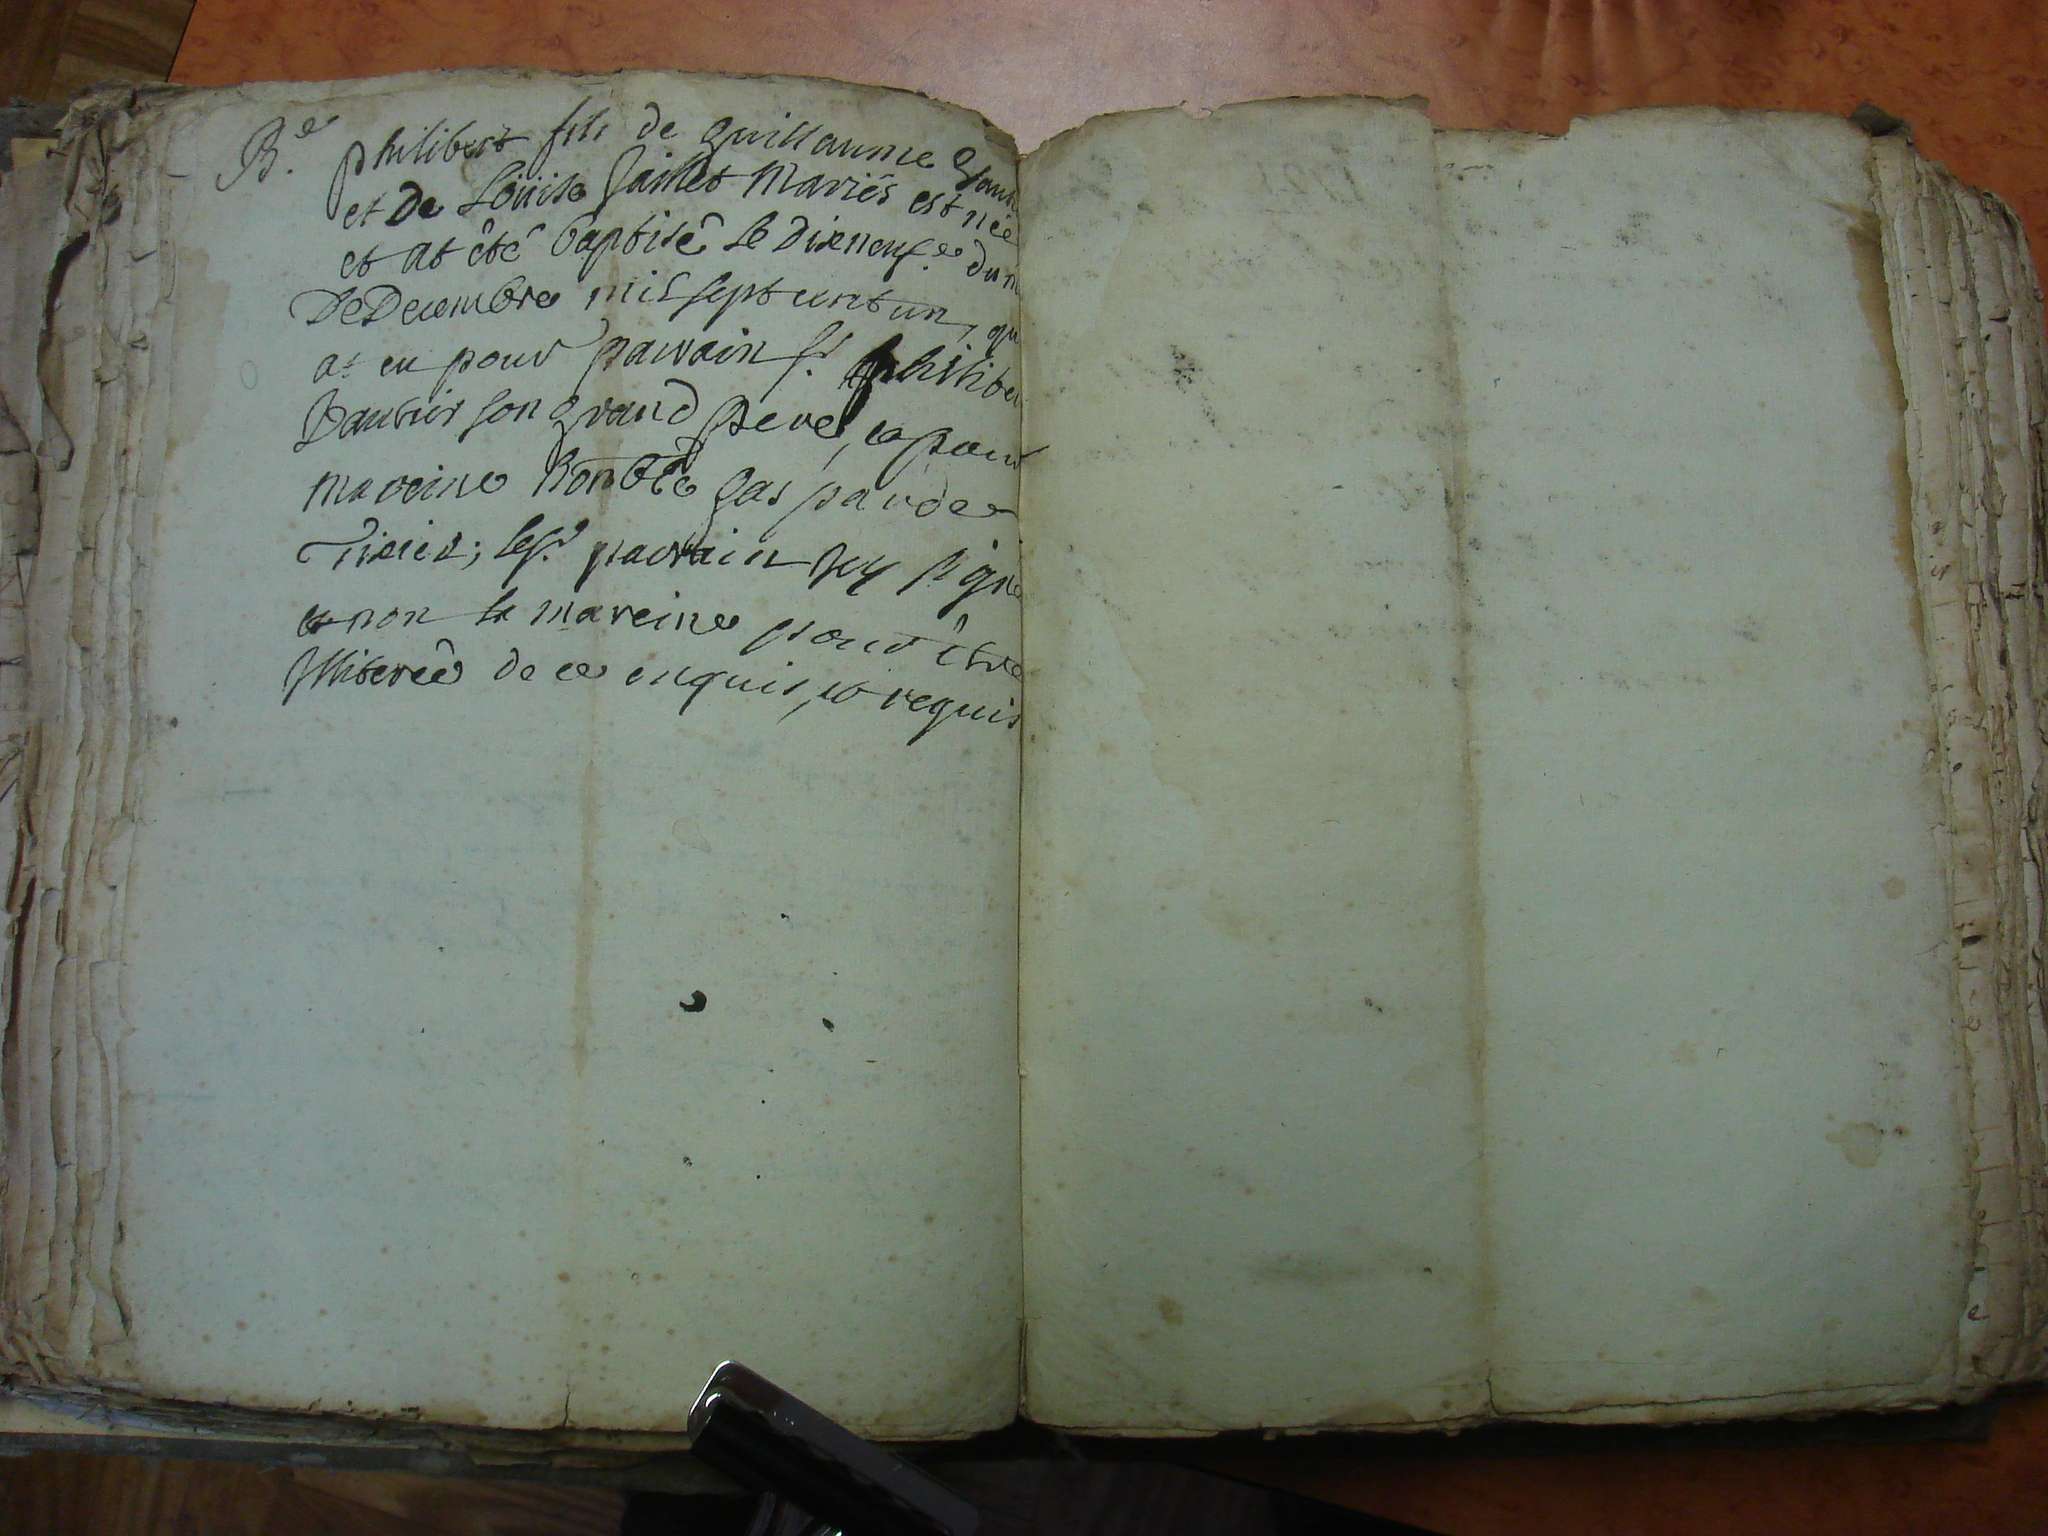 B.e philibert fils de guillaume
et De Loüise Jaillet Mariés est née
et at êté baptisê le dixneuf.e du m
De Decembre mil sept cent un, qu
at eu pour parrain sr. philiber
son grand pere, et pour
mareine honble gasparde
; le sr. parrain sig
et non la mareine pour être
Illiterée de ce enquis, et requis